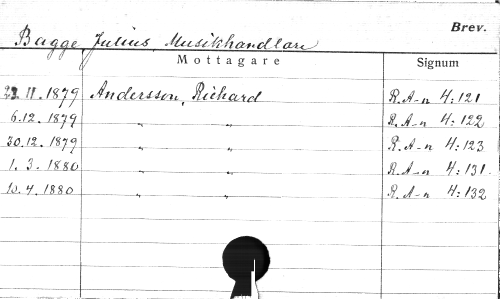 Brev.
Bagge, Julius, Musikhandlare
Mottagare Signum
22.11.1879 Andersson, Richard R.A-n 4:121
6.12.1879 " " R.A-n 4:122
30.12.1879 " " R.A-n 4:123
1.3.1880 " " R.A-n 4:131
4.1880 " " R.A-n 4:132